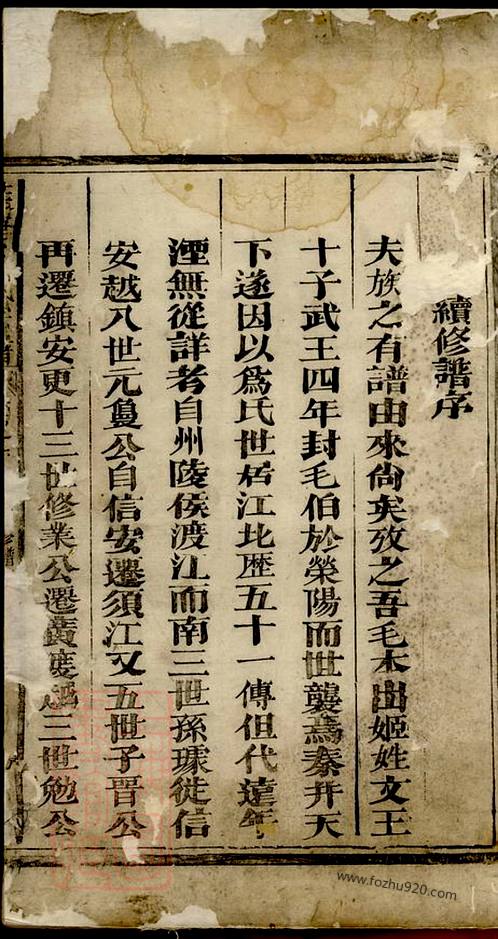 續修譜序
夫族之有譜由來尚矣攷之吾毛本出姬姓文王
十子武王四年封毛伯於榮陽而世襲焉秦并天
下遂因以爲氏世居江北歷五十一傳但代遠年
湮無從詳者自州陵侯渡江而南三世孫璩徙信
安越八世元瓊公自信安遷須江又五世子晉公
再遷鎮安更十三世修業公遷黃度越三世勉公
www.fozhu920.com